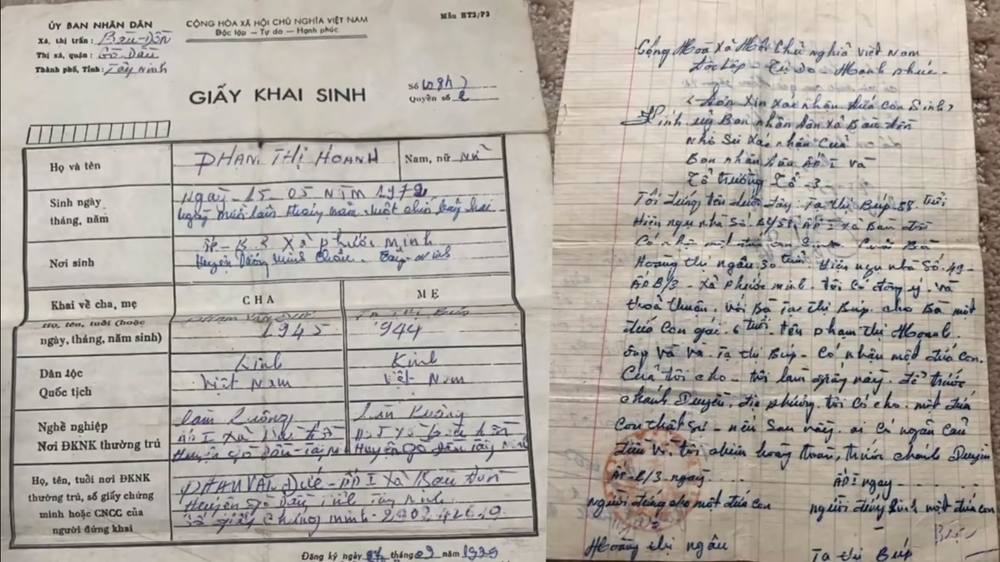 ỦY BAN NHÂN DÂN
Xã, thị trấn: Bàu Đồn
Thị xã, quận: Gò Dầu
Thành phố, Tỉnh: Tây Ninh
CỘNG HÒA XÃ HỘI CHỦ NGHĨA VIỆT NAM
Độc lập — Tự do — Hạnh phúc
Mẫu HT2/P3
GIẤY KHAI SINH
Số
Quyển số 2
Họ và tên
PHAN THỊ HOANH
Nam, nữ Nữ
Sinh ngày
tháng, năm
Ngày 15-05 NĂM 1972
ngày mười lăm tháng năm một chín bảy hai
Nơi sinh
ấp B.3 Xã phước minh
Huyện Dương Minh Châu Tây Ninh
Khai về cha, mẹ
CHA
MẸ
Họ, tên, tuổi (hoặc
ngày, tháng, năm sinh)
1945
1944
Dân tộc
Quốc tịch
Kinh
Việt Nam
Kinh
Việt Nam
Nghề nghiệp
Nơi ĐKNK thường trú
Làm Ruộng
ẤP I Xã Bàu Đồn
Huyện Gò Dầu Tây Ninh
Làm Ruộng
Huyện Gò Dầu Tây Ninh
Họ, tên, tuổi nơi ĐKNK
thường trú, số giấy chứng
minh hoặc CNCC của
người đứng khai
PHAN VĂN - ẤP I Xã Bàu Đồn
Huyện Gò Dầu Tỉnh Tây Ninh
Số giấy chứng minh
Đăng ký ngày tháng 09 năm
Cộng Hoà Xã Hội Chủ nghĩa Việt Nam
Độc Lập - Tự Do - Hạnh phúc
Đơn Xin Xác nhận đứa Con Sinh
Kính ủy Ban nhân dân xã Bàu đồn
nhờ Sự Xác nhận Của
Ban nhân dân ẤP I và
Tổ trưởng Tổ 3
Tôi đứng tên dưới đây Tạ Thị Búp 58 tuổi
Hiện ngụ nhà Số ẤP I xã Bàu đồn
Có nhận một Của Bà
Hoàng thị ngâu 30 tuổi Hiện ngụ nhà Số 49
ẤP B/3 - Xã phước minh. tôi Có đồng ý và
thoả thuận với Bà Tạ thị Búp cho Bà một
đứa Con gái 6 tuổi tên phạm thị Hoanh
ông và Tạ thị Búp - Có nhận một đứa Con
Của tôi cho - tôi làm giấy này để trước
chánh quyền, địa phương tôi Có cho một đứa
Con thật Sự - nếu Sau này ai Có ngăn Cản
tôi chịu hoàng toàn, trước chánh quyền
ngày
ẤP I ngày
người đứng cho một đứa con
người đứng một đứa con
Hoàng thị ngâu
Búp
Tạ thị Búp